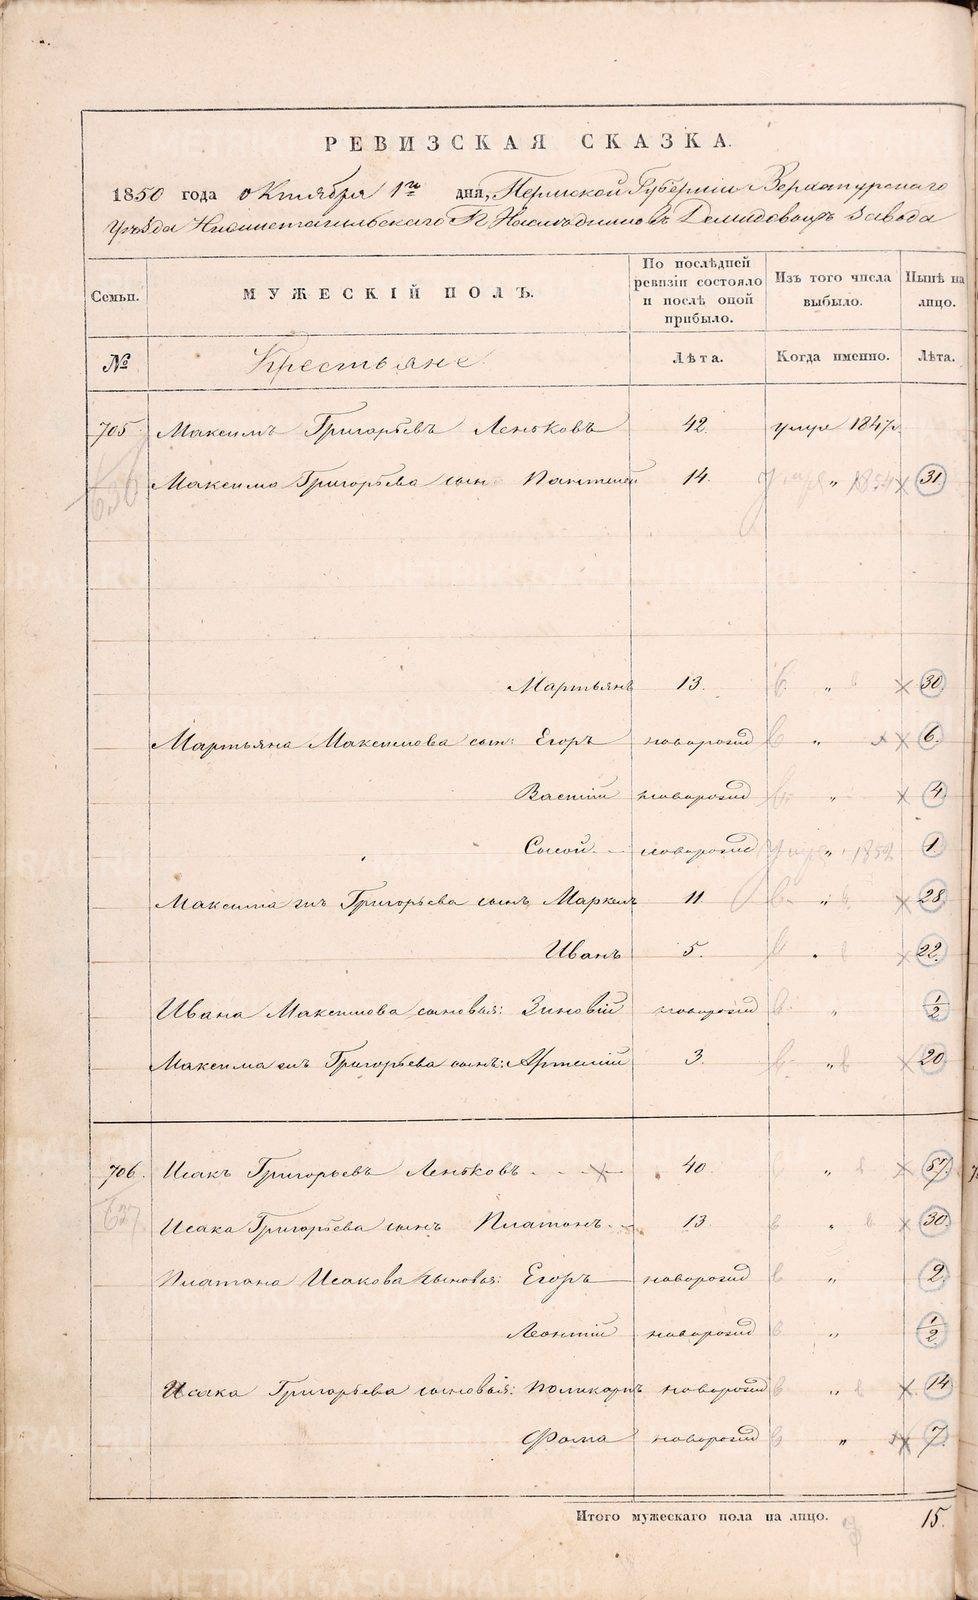 РЕВИЗСКАЯ СКАЗКА.
1850 года Октября 1го дня, Пермской Губерніи Верхотурскаго
Уѣзда Нижнетагильскаго Г. Наслѣдниковъ Демидовыхъ Завода
Семьи. МУЖЕСКІЙ ПОЛЪ. По послѣдней ревизіи состояло и послѣ оной прибыло. Изъ того числа выбыло. Нынѣ на лицо.
№ Крестьяне. Лѣта. Когда именно. Лѣта.
705. Максимъ Григорьевъ Леньковъ 42. умре 1847г.
636 Максима Григорьева сынъ Пантелей 14. " 1854 31.
Мартьянъ 13. " 30.
Мартьяна Максимова сын: Егоръ новорожд " 6.
Василій новорожд " 4.
Сысой новорожд " 1852 1.
Максима жъ Григорьева сынъ Маркелъ 11. " 28.
Иванъ 5. " 22.
Ивана Максимова сыновья: Зиновій новорожд " 1/2
Максима жъ Григорьева сынъ: Артемій 3. " 20.
706. Исакъ Григорьевъ Леньковъ 40. " 57.
637 Исака Григорьева сынъ Платонъ 13. " 30.
Платона Исакова сыновья: Егоръ новорожд " 2.
Леонтій новорожд " 1/2
Исака Григорьева сыновья: Поликарпъ новорожд " 14
Фома новорожд " 7.
Итого мужескаго пола на лицо. 15.
METRIKI.GASO-URAL.RU